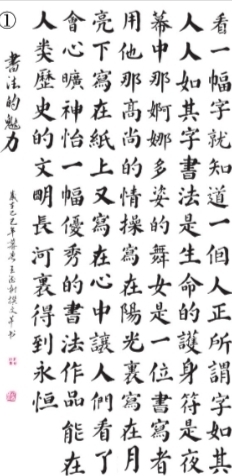 ①
看一幅字就知道一個人正所謂字如其
人人如其字書法是生命的護身符是夜
幕中那婀娜多姿的舞女是一位書寫者
用他那高尚的情操寫在陽光裏寫在月
亮下寫在紙上又寫在心中讓人們看了
會心曠神怡一幅優秀的書法作品能在
人类歷史的文明長河裏得到永恒
書法的魅力
撰文并書